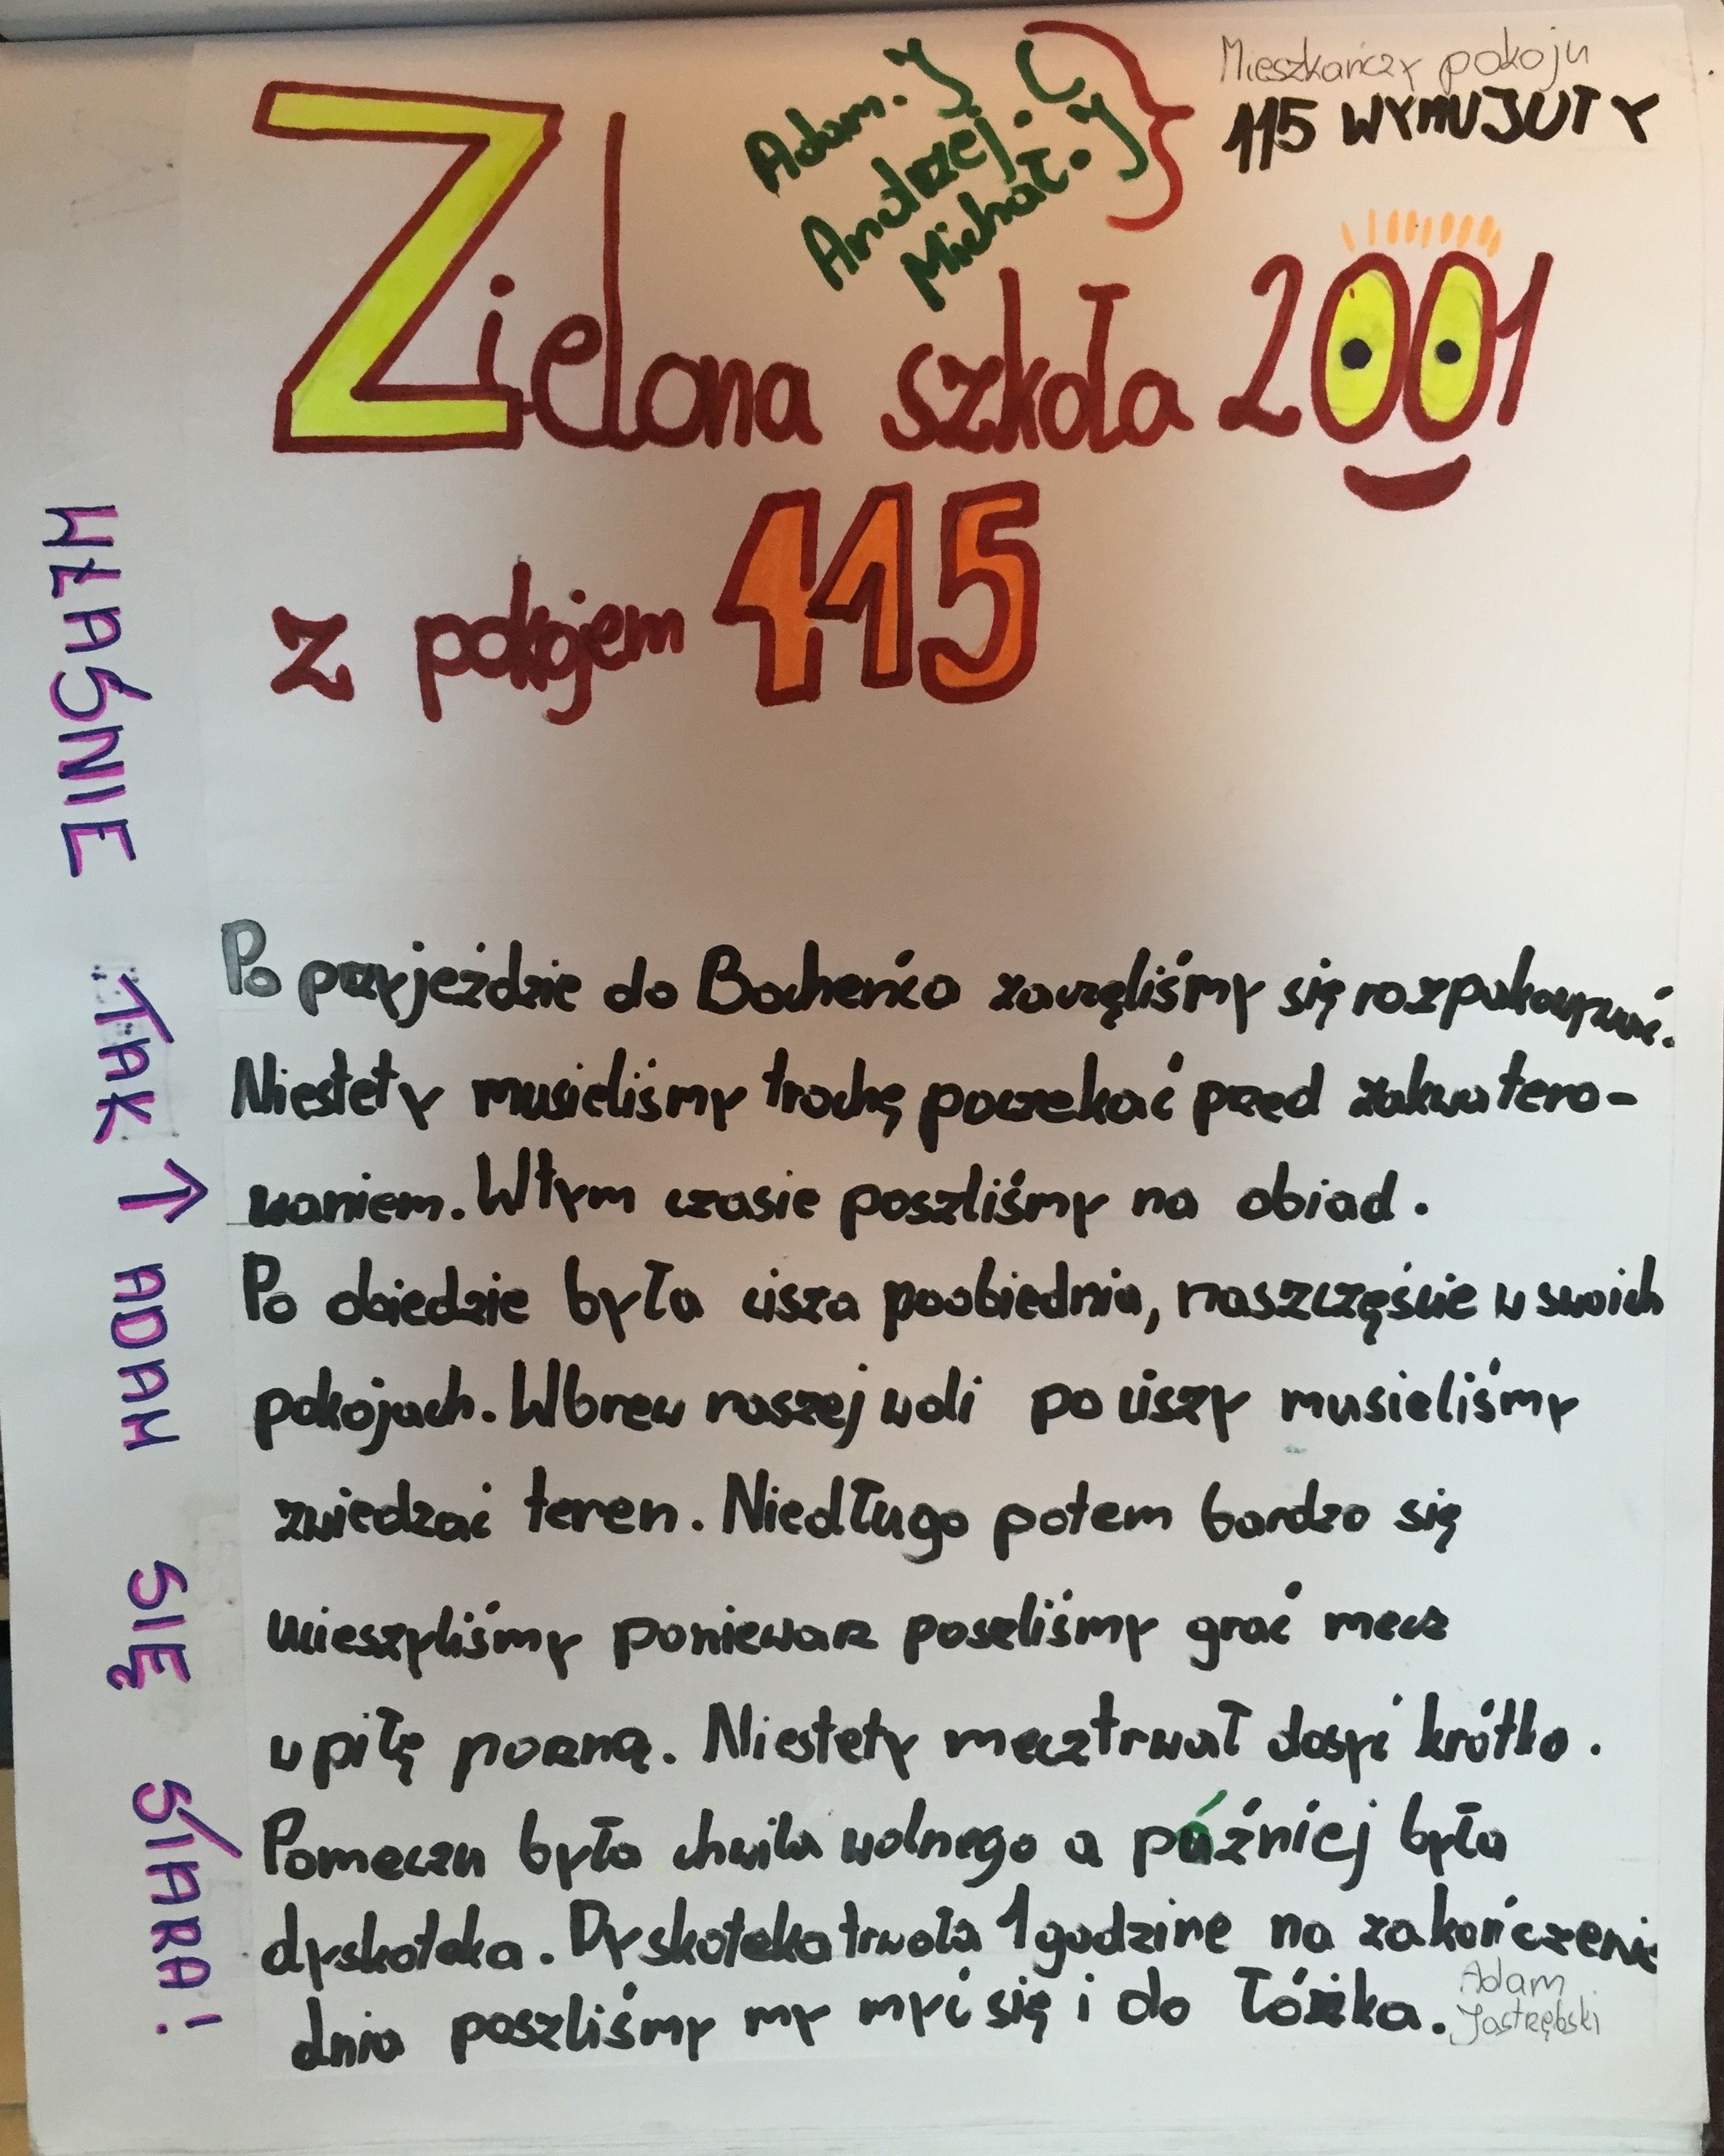 Adam. J
Andrzej. C
Michał. J
Mieszkańczy pokoju
115 WYMUJUTY
Zielona szkoła 2001
z pokojem 115
WŁAŚNIE TAK ↑ ADAM SIĘ SIARA!
Po przyjeździe do Bocheńca zaczęliśmy się rozpakowywać.
Niestety musieliśmy trochę poczekać przed zakwatero-
waniem. W tym czasie poszliśmy na obiad.
Po obiedzie była cisza poobiednia, naszczęście w swoich
pokojach. Wbrew naszej woli po ciszy musieliśmy
zwiedzać teren. Niedługo potem bardzo się
ucieszyliśmy poniewarz poszliśmy grać mecz
w piłę norzną. Niestety mecz trwał dosyć krótko.
Pomeczu była chwila wolnego a púźniej była
dyskoteka. Dyskoteka trwała 1 godzine na zakończenie
dnia poszliśmy my myć się i do łóżka.
Adam
Jastrzębski